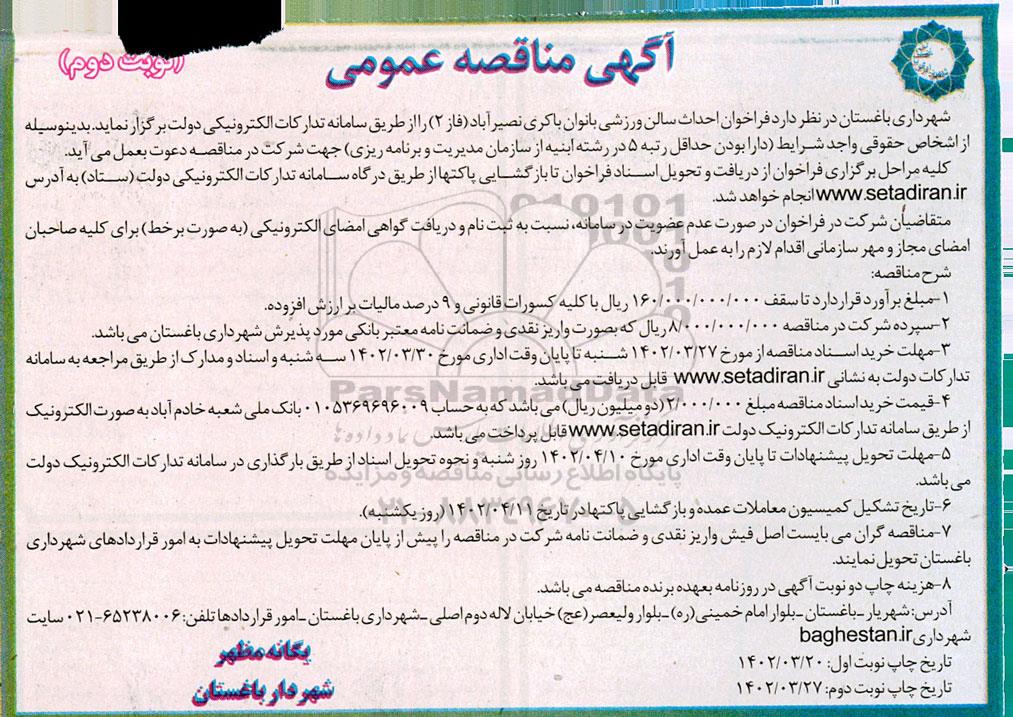 آگهی مناقصه عمومی
(نوبت دوم)
شهرداری باغستان در نظر دارد فراخوان احداث سالن ورزشی بانوان باکری نصیرآباد (فاز ۲) را از طریق سامانه تدارکات الکترونیکی دولت برگزار نماید. بدینوسیله
از اشخاص حقوقی واجد شرایط (دارا بودن حداقل رتبه ۵ در رشته ابنیه از سازمان مدیریت و برنامه ریزی) جهت شرکت در مناقصه دعوت بعمل می آید.
کلیه مراحل برگزاری فراخوان از دریافت و تحویل اسناد فراخوان تا بازگشایی پاکتها از طریق درگاه سامانه تدارکات الکترونیکی دولت (ستاد) به آدرس
www.setadiran.ir انجام خواهد شد.
متقاضیان شرکت در فراخوان در صورت عدم عضویت در سامانه، نسبت به ثبت نام و دریافت گواهی امضای الکترونیکی (به صورت برخط) برای کلیه صاحبان
امضای مجاز و مهر سازمانی اقدام لازم را به عمل آورند.
شرح مناقصه:
۱-مبلغ برآورد قرارداد تا سقف ۱۶۰/۰۰۰/۰۰۰/۰۰۰ ریال با کلیه کسورات قانونی و ۹ درصد مالیات بر ارزش افزوده.
۲-سپرده شرکت در مناقصه ۸/۰۰۰/۰۰۰/۰۰۰ ریال که بصورت واریز نقدی و ضمانت نامه معتبر بانکی مورد پذیرش شهرداری باغستان می باشد.
۳-مهلت خرید اسناد مناقصه از مورخ ۱۴۰۲/۰۳/۲۷ شنبه تا پایان وقت اداری مورخ ۱۴۰۲/۰۳/۳۰ سه شنبه و اسناد و مدارک از طریق مراجعه به سامانه
تدارکات دولت به نشانی www.setadiran.ir قابل دریافت می باشد.
۴-قیمت خرید اسناد مناقصه مبلغ ۲/۰۰۰/۰۰۰ (دو میلیون ریال) می باشد که به حساب ۰۱۰۵۳۶۹۶۹۶۰۰۹ بانک ملی شعبه خادم آباد به صورت الکترونیک
از طریق سامانه تدارکات الکترونیک دولت www.setadiran.ir قابل پرداخت می باشد.
۵-مهلت تحویل پیشنهادات تا پایان وقت اداری مورخ ۱۴۰۲/۰۴/۱۰ روز شنبه و نحوه تحویل اسناد از طریق بارگذاری در سامانه تدارکات الکترونیک دولت
می باشد.
۶-تاریخ تشکیل کمیسیون معاملات عمده و بازگشایی پاکتها در تاریخ ۱۴۰۲/۰۴/۱۱ (روز یکشنبه).
۷-مناقصه گران می بایست اصل فیش واریز نقدی و ضمانت نامه شرکت در مناقصه را پیش از پایان مهلت تحویل پیشنهادات به امور قراردادهای شهرداری
باغستان تحویل نمایند.
۸-هزینه چاپ دو نوبت آگهی در روزنامه بعهده برنده مناقصه می باشد.
آدرس: شهریار ـ باغستان ـ بلوار امام خمینی (ره) ـ بلوار ولیعصر (عج) خیابان لاله دوم اصلی ـ شهرداری باغستان ـ امور قراردادها تلفن: ۶۵۲۳۸۰۰۶-۰۲۱ سایت
شهرداری baghestan.ir
تاریخ چاپ نوبت اول: ۱۴۰۲/۰۳/۲۰
تاریخ چاپ نوبت دوم: ۱۴۰۲/۰۳/۲۷
یگانه مظهر
شهردار باغستان
ParsNamadData
پایگاه اطلاع رسانی مناقصه و مزایده